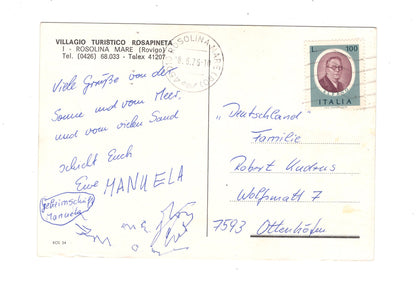 VILLAGIO TURISTICO ROSAPINETA
I - ROSOLINA MARE (Rovigo)
Tel. (0426) 68.033 - Telex 41207
Viele Grüße von der
Sonne und vom Meer
und vom vielen Sand
schickt Euch
Eure MANUELA
Geheimschrift
Manuela
ROSOLINA MARE
L. 100
ITALIA
"Deutschland"
Familie
Robert
Wolfsmatt 7
7593 Ottenhöfen